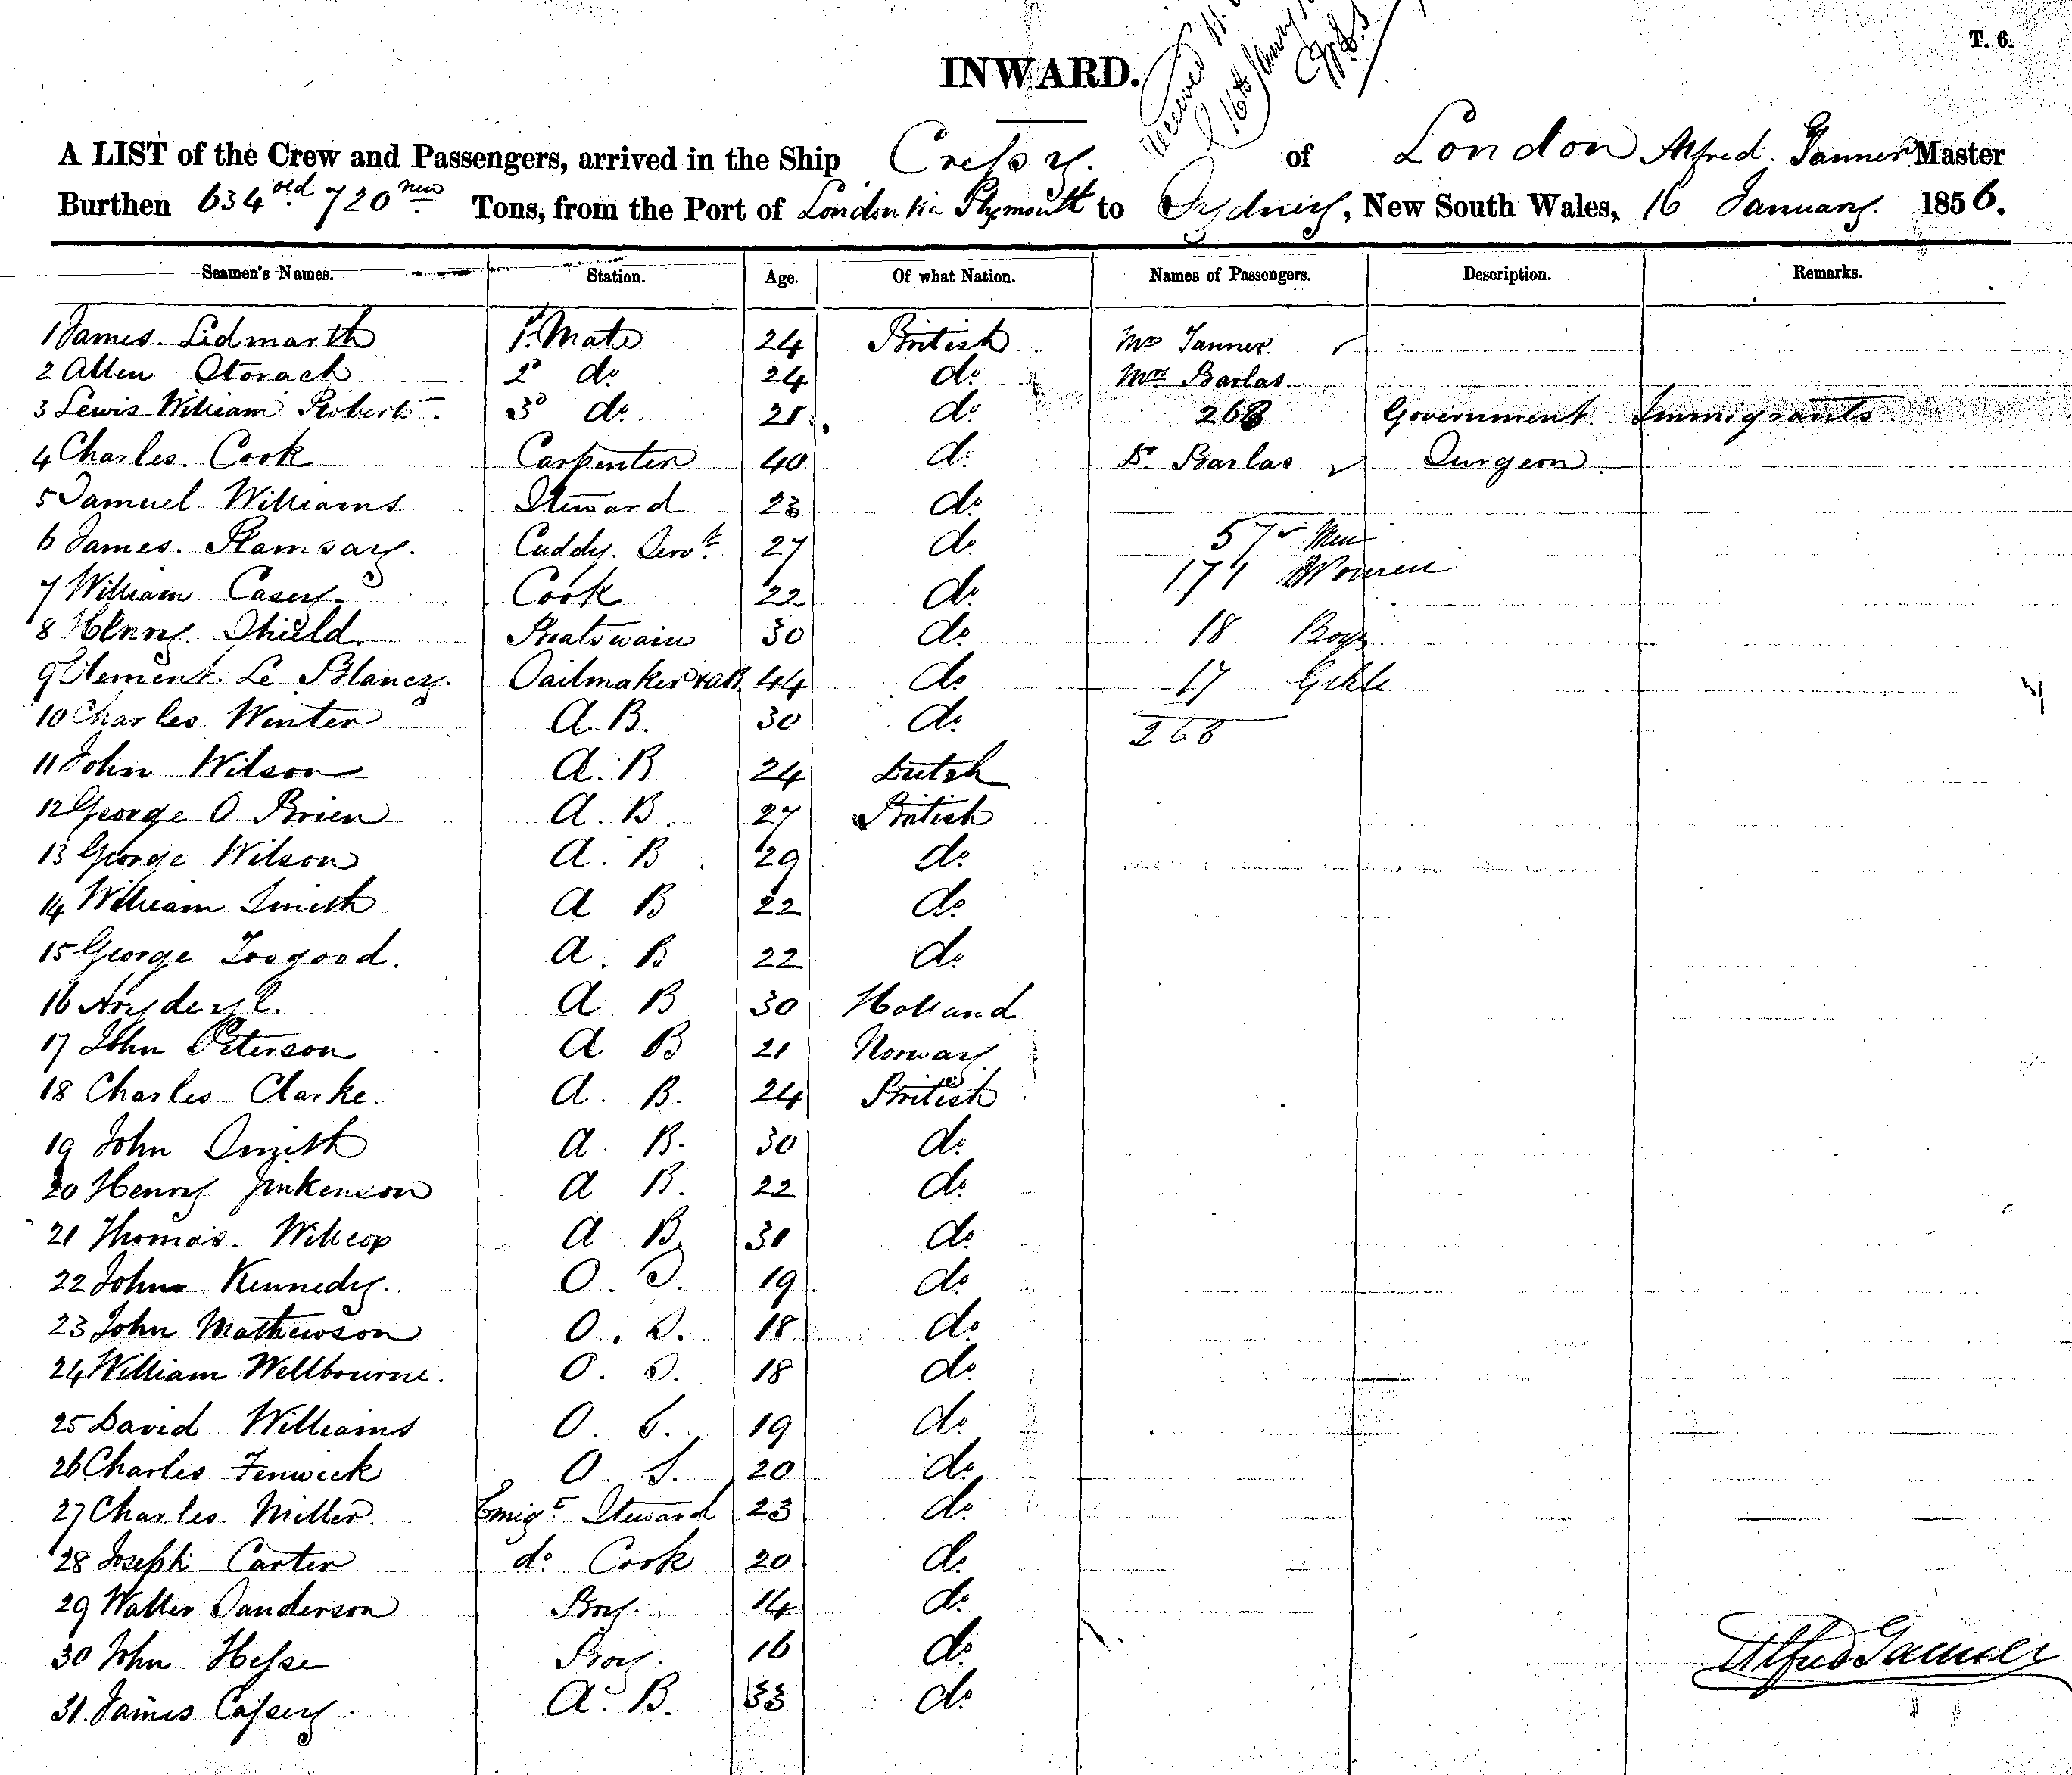 T. 6.
INWARD.
Received
16th Jany
A LIST of the Crew and Passengers, arrived in the Ship Cressy. of London Alfred Tanner Master
Burthen 634 old 720 new Tons, from the Port of London via Plymouth to Sydney, New South Wales, 16 January. 1856.
Seamen's Names. Station. Age. Of what Nation. Names of Passengers. Description. Remarks.
1 James Lidmarth 1st Mate 24 British Mrs Tanner
2 Allen Storach 2d do 24 do Mrs Barlas.
3 Lewis William Roberts 3d do 21 do 268 Government Immigrants
4 Charles Cook Carpenter 40 do Dr Barlas Surgeon
5 Samuel Williams Steward 23 do
6 James Ramsay. Cuddy Servt 27 do 57 Men
7 William Casey Cook 22 do 171 Women
8 Henry Shield Boatswain 30 do 18 Boys
9 Clement Le Blancy. Sailmaker & AB 44 do 17 Girls
10 Charles Winter A B. 30 do 268
11 John Wilson A. B 24 Dutch
12 George O Brien A. B. 27 British
13 George Wilson A. B 29 do
14 William Smith A B 22 do
15 George Toogood. A. B 22 do
16 A B 30 Holland
17 John Peterson A B 21 Norway
18 Charles Clarke. A. B. 24 British
19 John Smith A. B. 30 do
20 Henry Jinkenson A B. 22 do
21 Thomas Willcox A B. 31 do
22 John Kennedy. O. S. 19 do
23 John Mathewson O. S. 18 do
24 William Wellbourne. O. S. 18 do
25 David Williams O. S. 19 do
26 Charles Fenwick O. S. 20 do
27 Charles Miller. Emigt Steward 23 do
28 Joseph Carter do Cook 20 do
29 Walter Sanderson Boy. 14 do
30 John Hesse Boy. 16 do
31. James Cassey. A. B. 33 do
Alfred Tanner